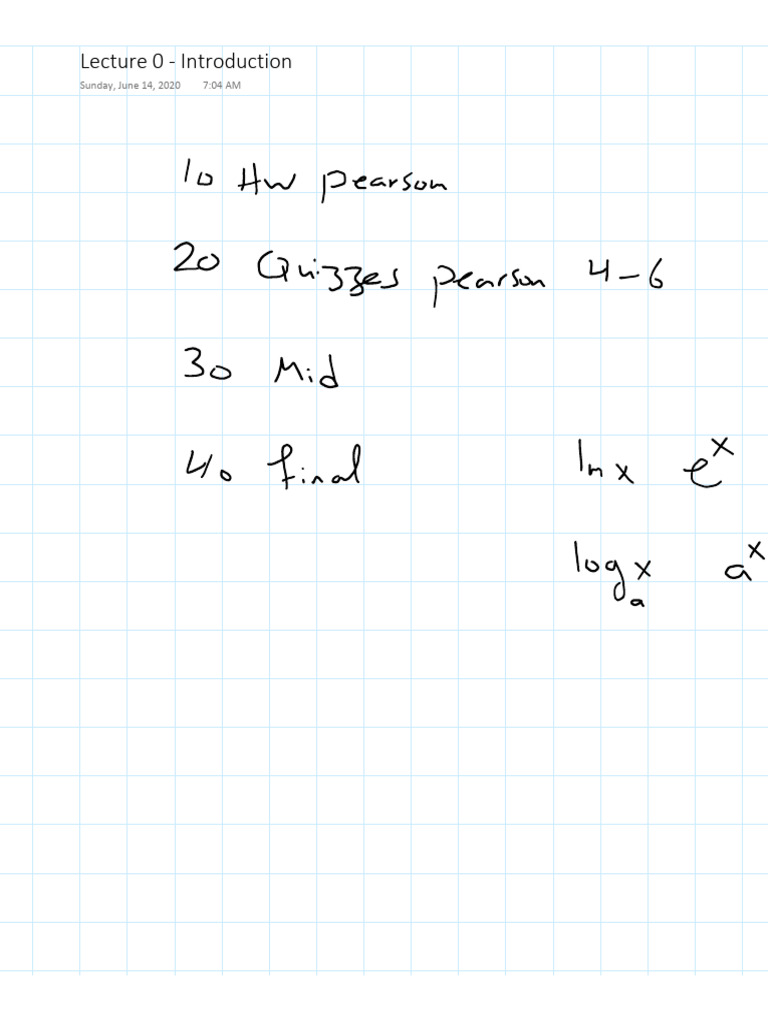 Lecture 0 - Introduction
Sunday, June 14, 2020 7:04 AM
10 HW pearson
20 Quizzes pearson 4-6
30 Mid
40 final
ln x e^x
log_a x a^x